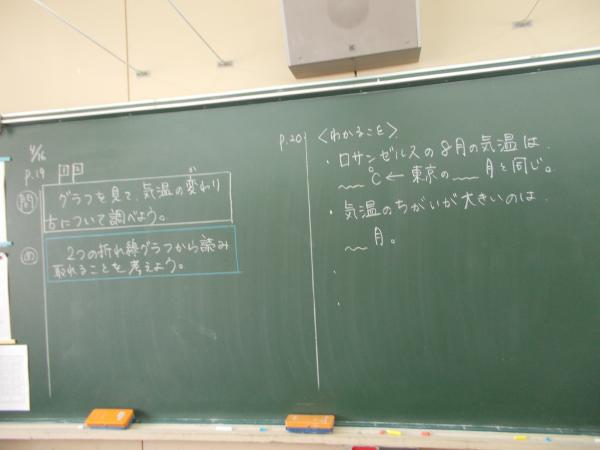 4/16
p.19
問
グラフを見て、気温の変わり
方について調べよう。
め
2つの折れ線グラフから読み
取れることを考えよう。
p.20
〈わかること〉
・ロサンゼルスの8月の気温は、
℃←東京の 月と同じ。
・気温のちがいが大きいのは、
月。
・
・